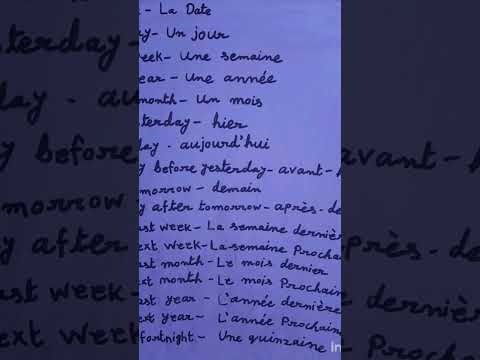 - La Date
y- Un jour
eek- Une semaine
ear- Une année
month- Un mois
terday- hier
day. aujourd'hui
y before yesterday- avant-
morrow- demain
y after tomorrow- après-de
ast week- La semaine dernièr
ext week- La semaine Prochai
ast month- Le mois dernier
ext month- Le mois Prochain
ast year - L'année dernière
ext year - L'année Prochain
fortnight - Une quinzaine